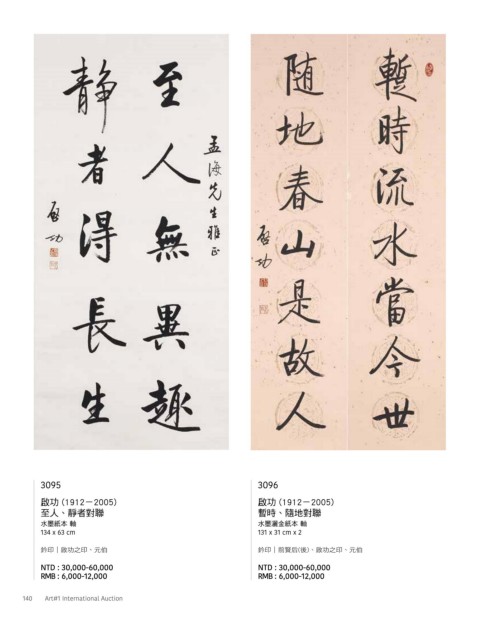 至人無異趣
靜者得長生
孟海先生雅正
啟功
暫時流水當今世
随地春山是故人
啟功
3095
啟功 (1912－2005)
至人、靜者對聯
水墨紙本 軸
134 x 63 cm
鈐印｜啟功之印、元伯
NTD : 30,000-60,000
RMB : 6,000-12,000
3096
啟功 (1912－2005)
暫時、隨地對聯
水墨灑金紙本 軸
131 x 31 cm x 2
鈐印｜前賢后(後)、啟功之印、元伯
NTD : 30,000-60,000
RMB : 6,000-12,000
140 Art#1 International Auction